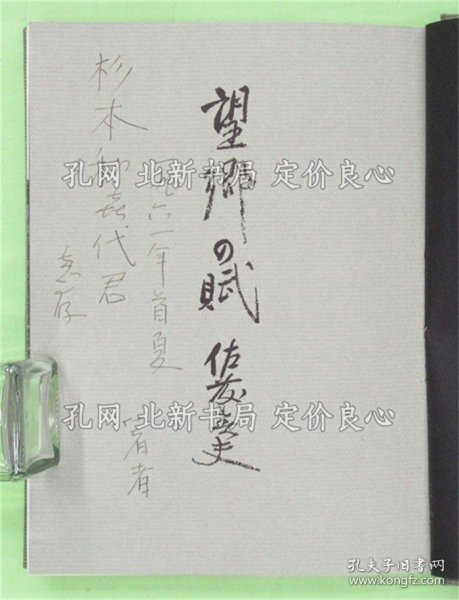 望郷の賦 佐藤春夫
一九六一年首夏 著者
杉本 喜代君
恵存
孔网 北新书局 定价良心
孔网 北新书局 定价良心
孔夫子旧书网
www.kongfz.com